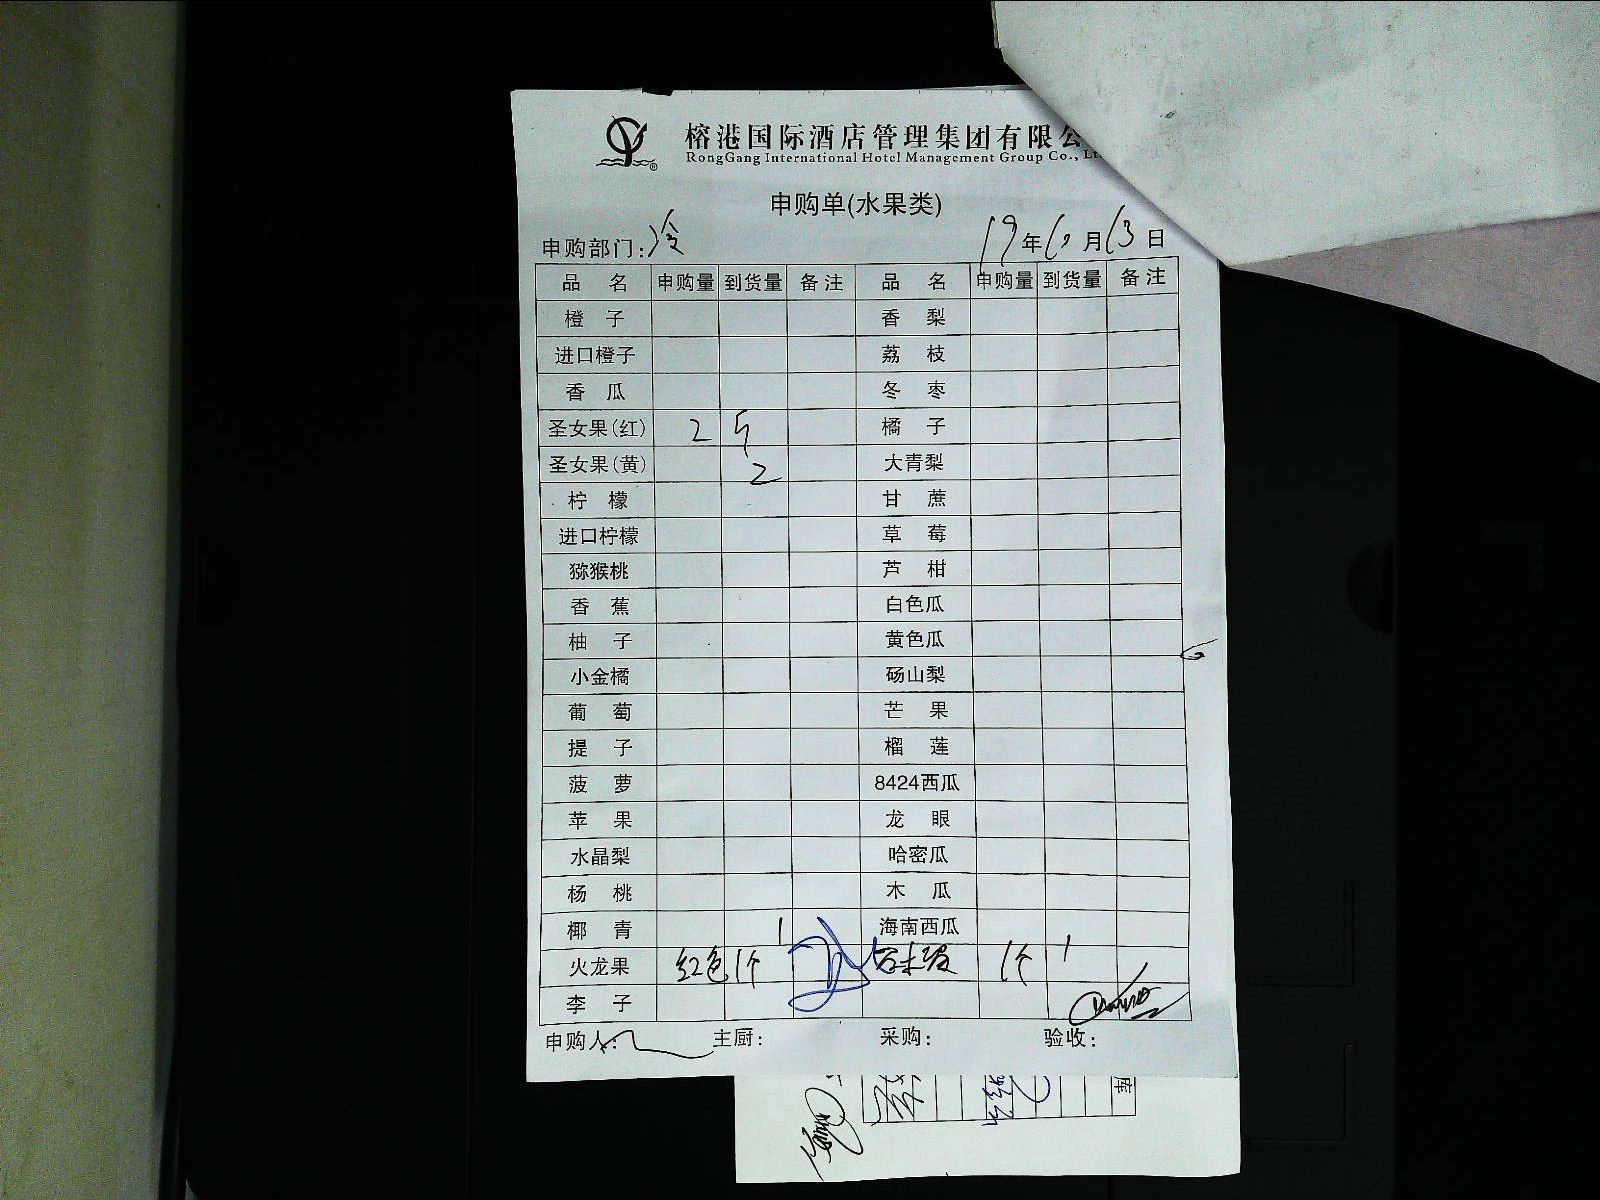 榕港国际酒店管理集团有限公
RongGang International Hotel Management Group Co., Lt
申购单(水果类)
申购部门:冷 19年10月13日
品名 申购量 到货量 备注 品名 申购量 到货量 备注
橙子 香梨
进口橙子 荔枝
香瓜 冬枣
圣女果(红) 2斤 橘子
圣女果(黄) 2 大青梨
柠檬 甘蔗
进口柠檬 草莓
猕猴桃 芦柑
香蕉 白色瓜
柚子 黄色瓜
小金橘 砀山梨
葡萄 芒果
提子 榴莲
菠萝 8424西瓜
苹果 龙眼
水晶梨 哈密瓜
杨桃 木瓜
椰青 1 海南西瓜
火龙果 红色1个 1个 1
李子
申购人: 主厨: 采购: 验收:
库